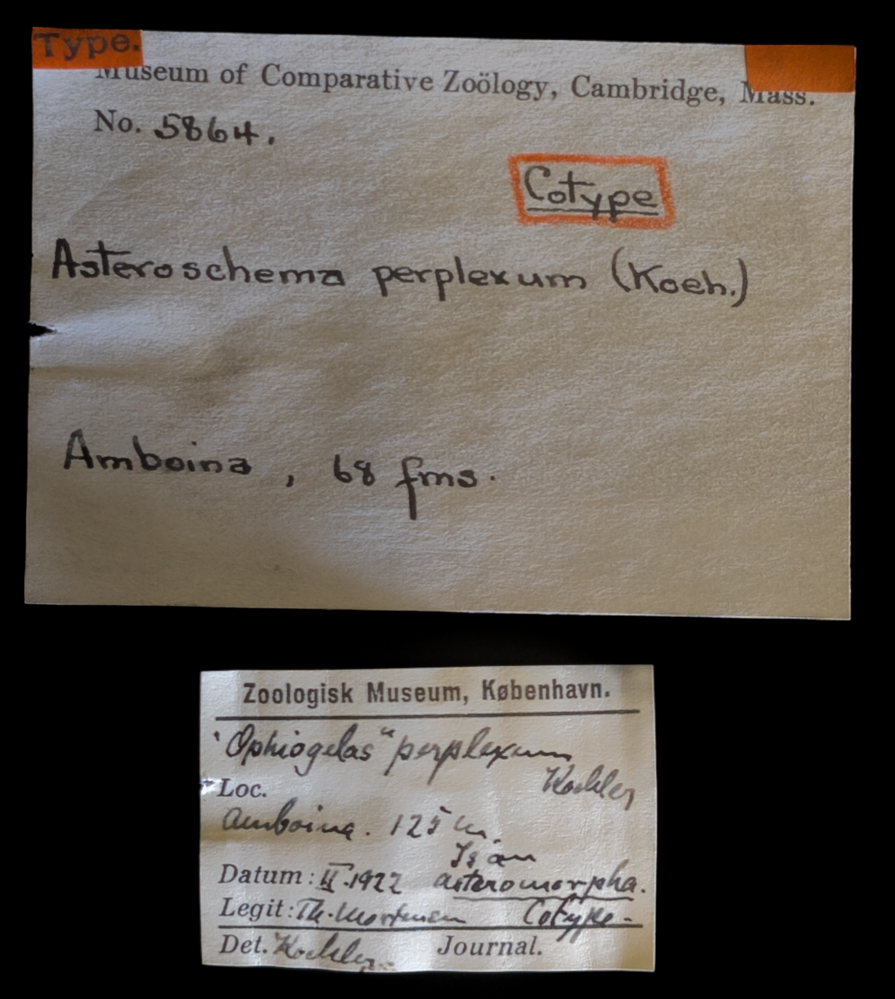 Type.
Museum of Comparative Zoölogy, Cambridge, Mass.
No. 5864.
Cotype
Asteroschema perplexum (Koeh.)
Amboina, 68 fms.
Zoologisk Museum, København.
"Ophiogelas" perplexum
Koehler
Loc.
Amboina. 125 m.
Is an
Datum: II.1922 asteromorpha.
Legit: Th. Mortensen Cotype-
Det. Koehler. Journal.